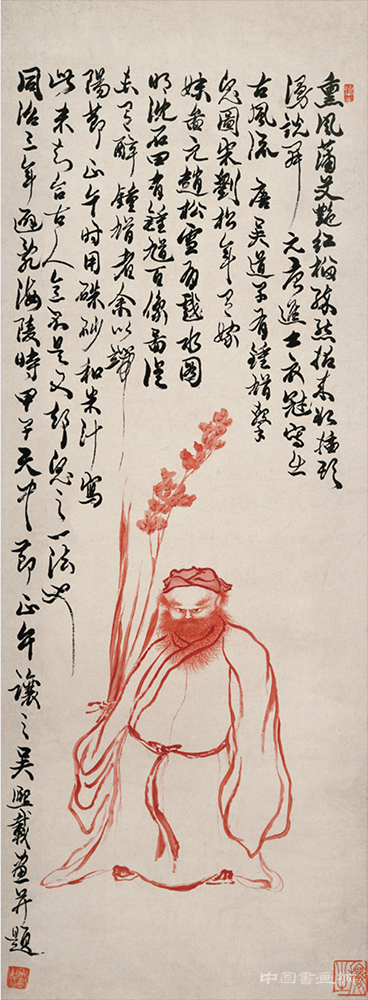 熏風蒲艾艷紅榴招來插頭
漫說開元唐進士衣冠寫出
古風流 唐吳道子有鍾馗擊
鬼圖宋劉松年有嫁
妹畫元趙松雪有戲水圖
明沈石田有鍾馗百像圖從
未有醉鍾馗者余以端
陽節正午時用硃砂和米汁寫
此未知合古人意否是又却鬼之一法也
同治三年避亂海陵時甲子天中節正午讓之吳熙載畫并題